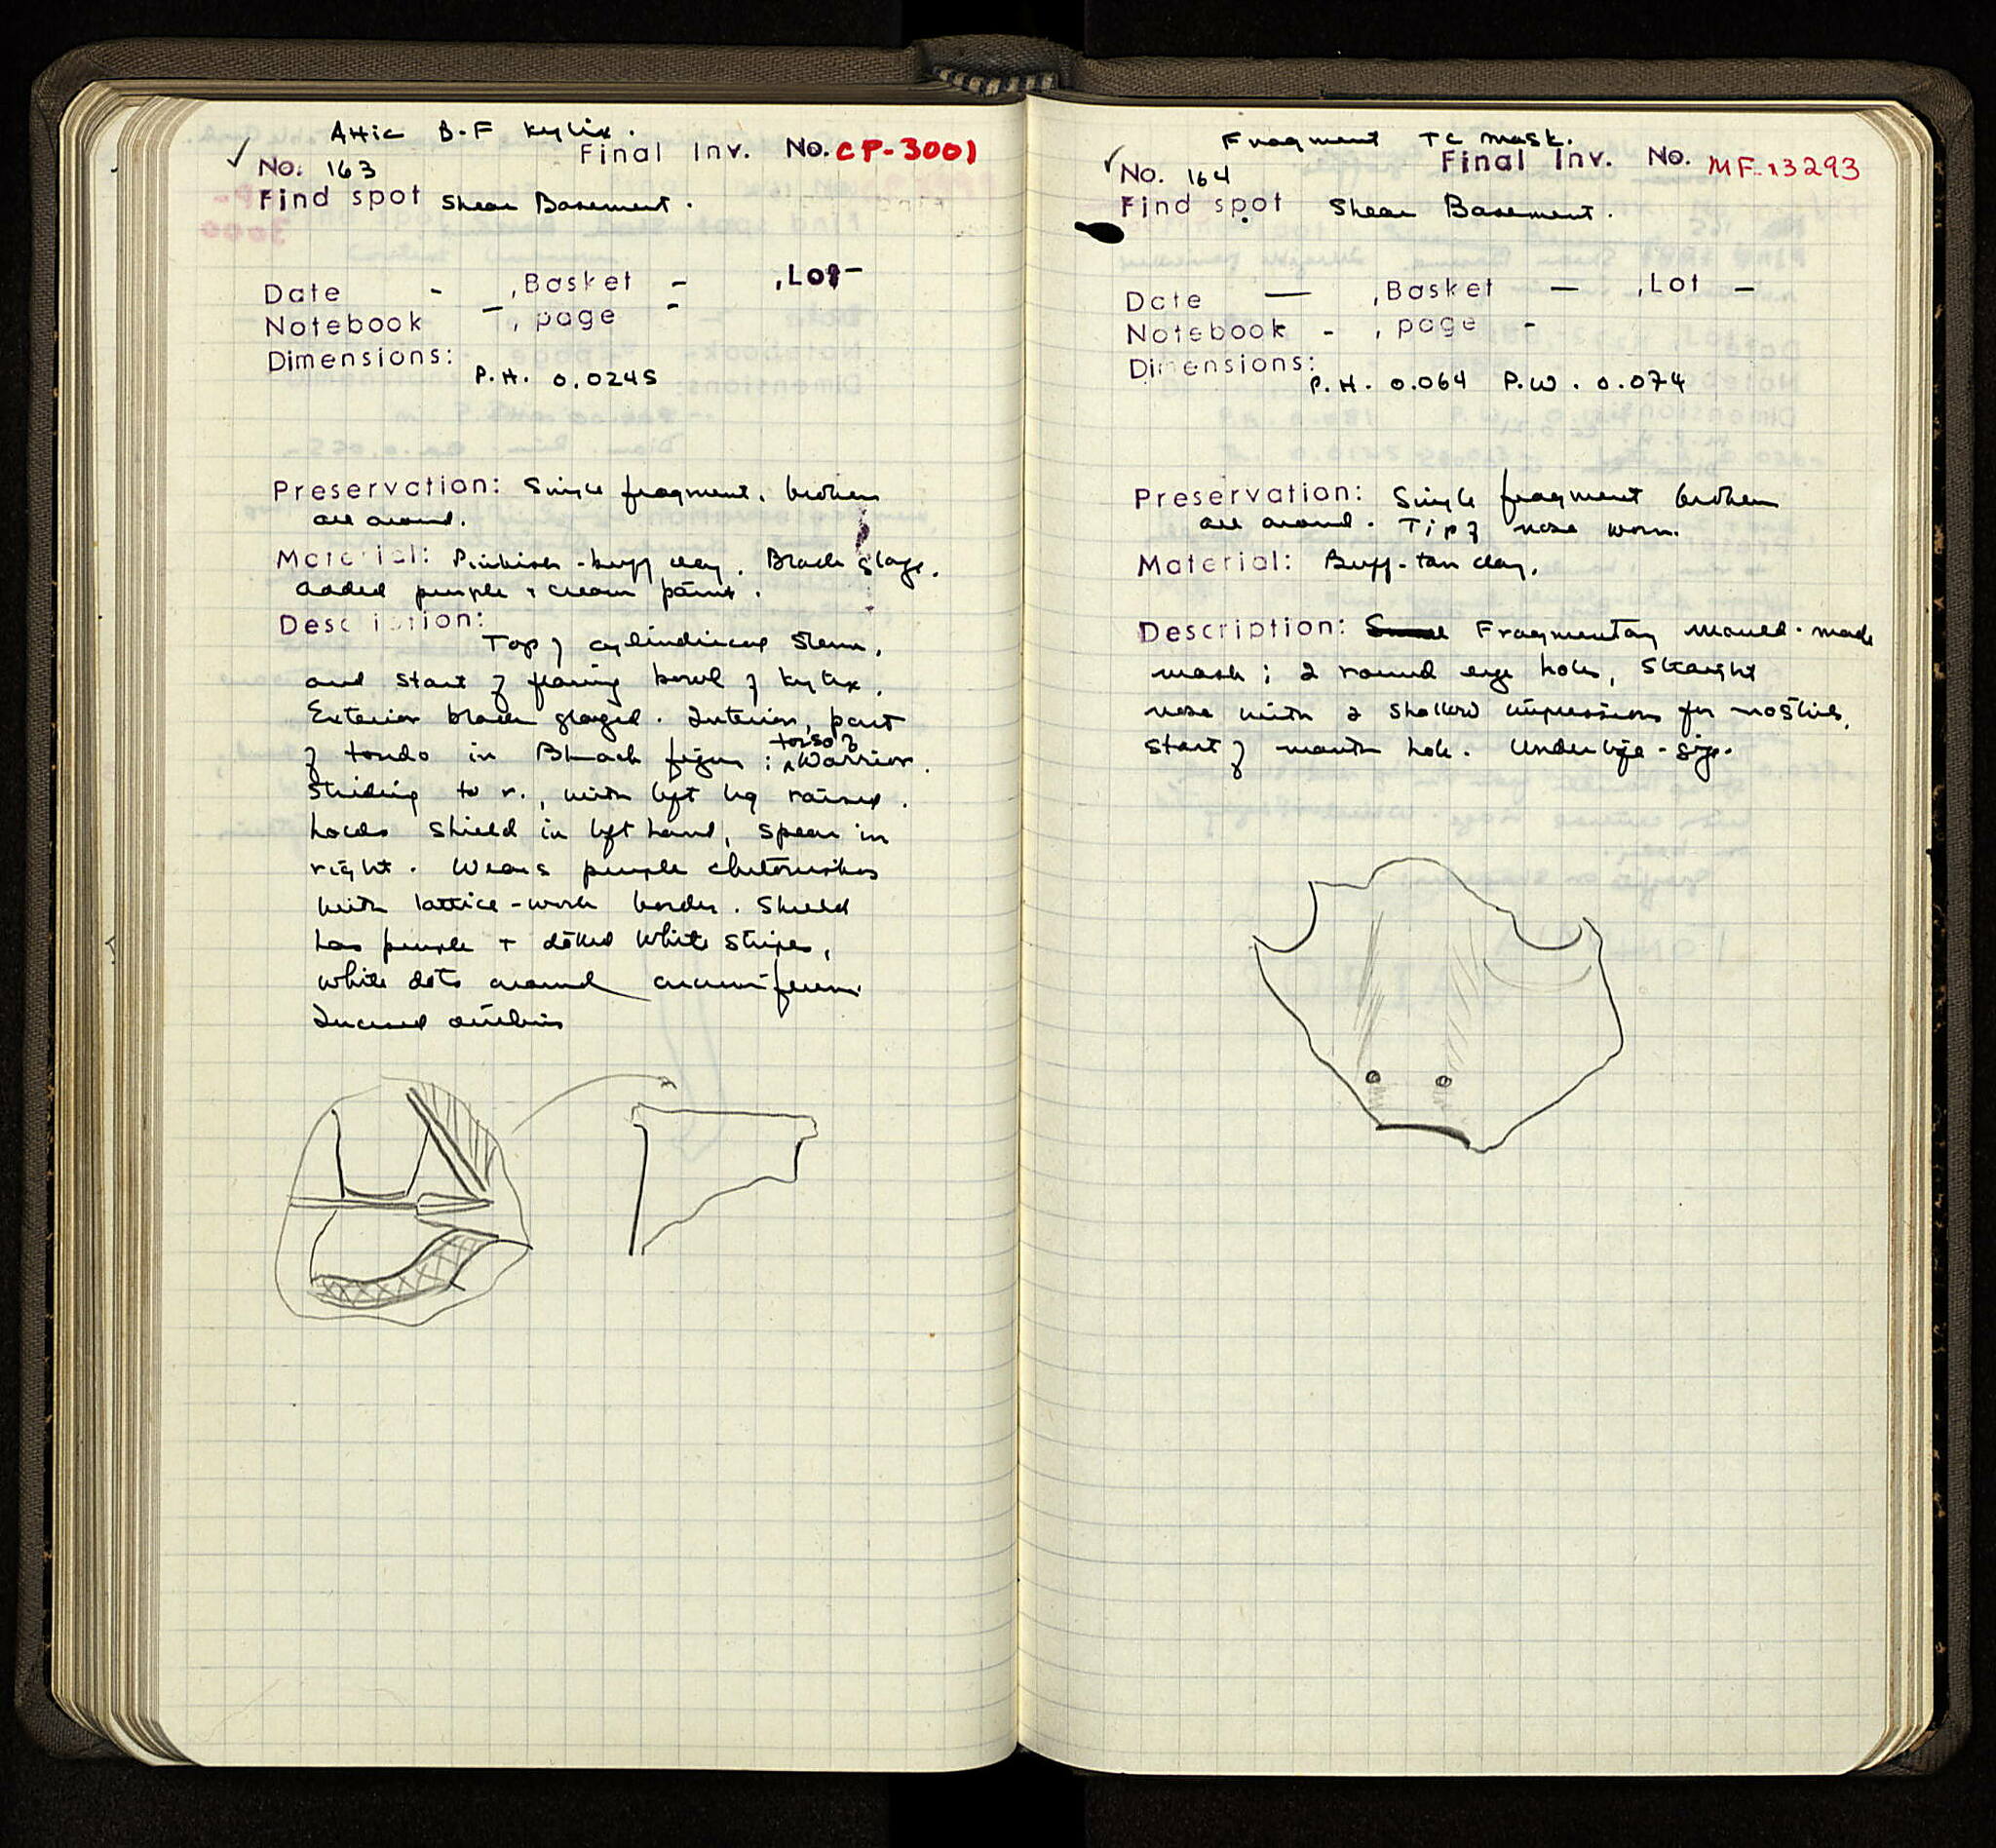 Attic B-F Kylix.
✓ No. 163 Final Inv. No. CP-3001
Find spot Shear Basement.
Date - , Basket - , Lot -
Notebook - , page -
Dimensions:
P.H. 0.0245
Preservation: Single fragment, broken
all around.
Material: Pinkish-buff clay. Black glaze.
Added purple + cream paint.
Description:
Top of cylindrical stem,
and start of flaring bowl of kylix.
Exterior black glazed. Interior, part
of tondo in Black figure: torso of Warrior
striding to r., with left leg raised.
Holds shield in left hand, spear in
right. Wears purple chitoniskos
with lattice-work border. Shield
has purple + dotted white stripes,
white dots around circumference.
Incised outlines
Fragment TC Mask.
✓ No. 164 Final Inv. No. MF-13293
Find spot Shear Basement.
Date — , Basket — , Lot —
Notebook - , page -
Dimensions:
P.H. 0.064 P.W. 0.074
Preservation: Single fragment broken
all around. Tip of nose worn.
Material: Buff-tan clay.
Description: Fragmentary mould-made
mask; 2 round eye holes, straight
nose with 2 shallow impressions for nostrils,
start of mouth hole. Under life-size.